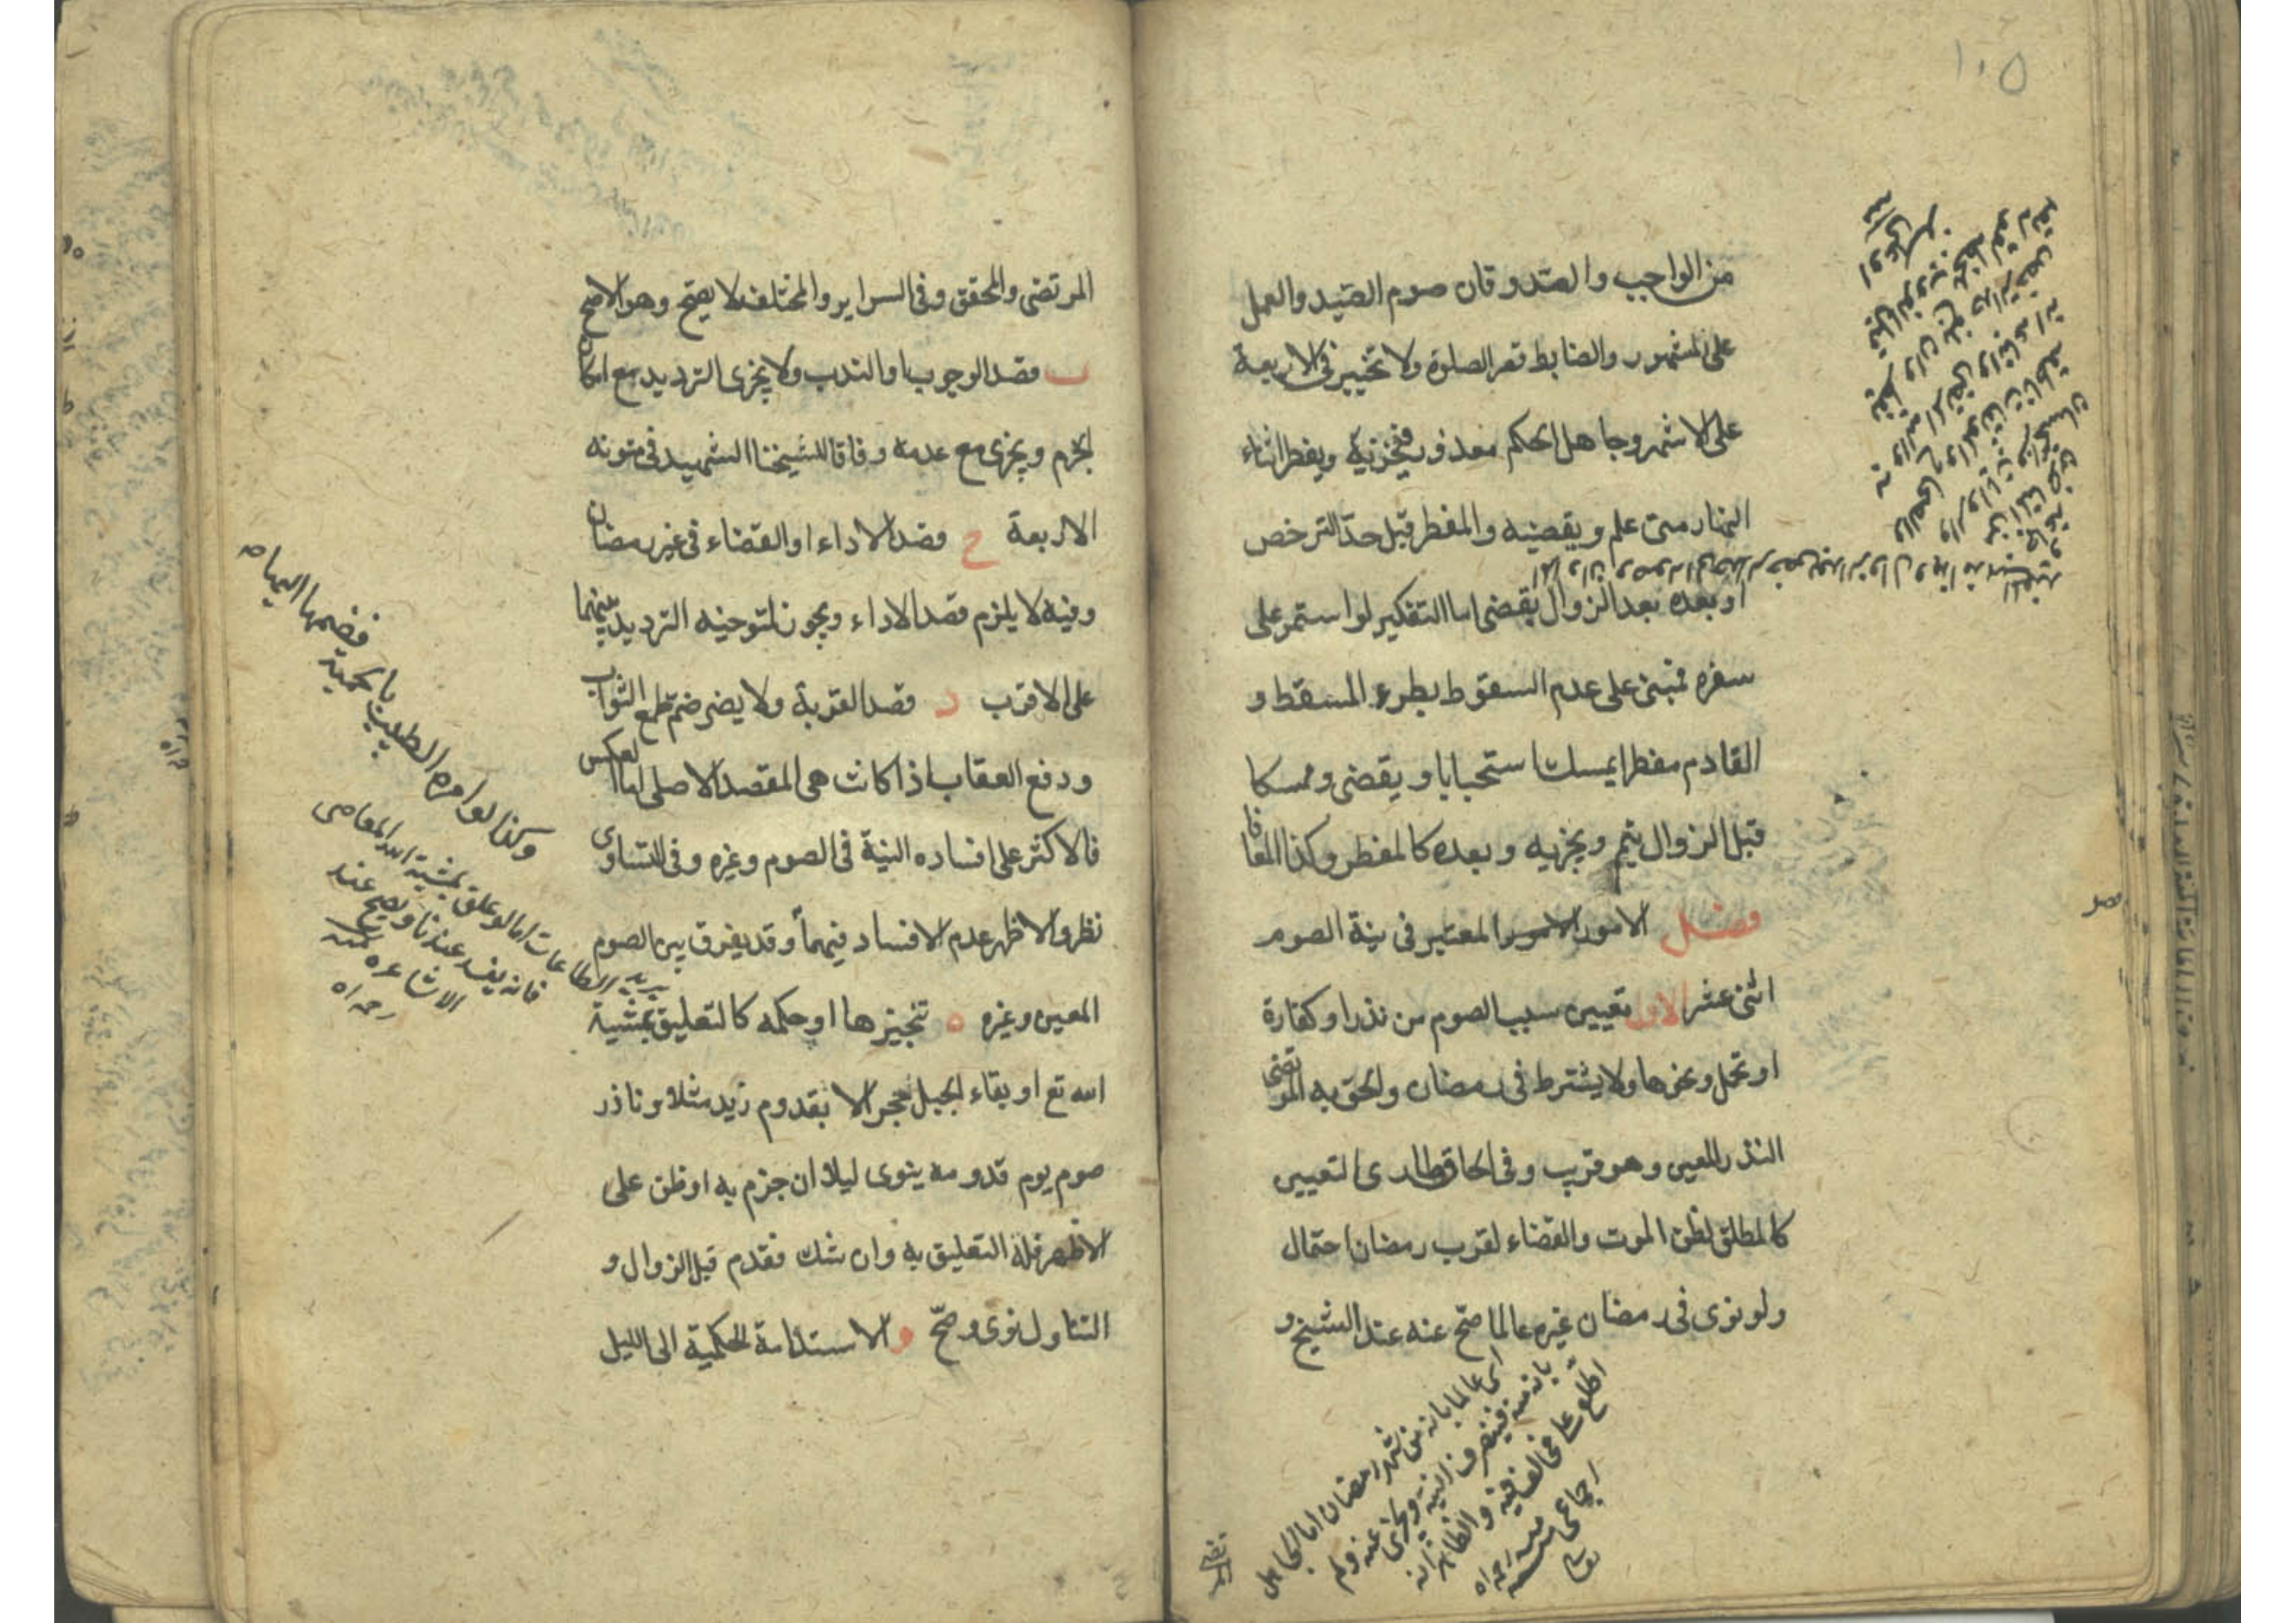 ١٠٥
من الواجب والصدوقان صوم الصيد والعمل
على المشهور والضابط قصر الصلوة ولا تخيير فى الاربعة
على الاشهر وجاهل الحكم معذور فيجزيه ويفطر اثناء
النهار متى علم ويقضيه والمفطر قبل حد الترخص
او بعده بعد الزوال يقضى اما التفكير لو استمر على
سفره فمبنى على عدم السقوط بطروء المسقط و
القادم مفطرا يمسك استحبابا ويقضى وممسكا
قبل الزوال يتم ويجزيه وبعده كالمفطر وكذا المعافا
فصل الامور المعتبر فى نية الصوم
اثنى عشر الاول تعيين سبب الصوم من نذر او كفارة
او تحمل وغيرها ولا يشترط فى رمضان والحق به المرتضى
النذر المعين وهو قريب وفى الحاق طارى التعيين
كالمطلق لظن الموت والقضاء لقرب رمضان احتمال
ولو نوى فى رمضان غيره عالما صح عنه عند الشيخ و
اى عالما بانه من شهر رمضان اما الجاهل
بانه منه فينصرف النية ويجزى عنه ولم
اطلع على مخالف فيه والظاهر انه
اجماعى منه رحمه اه
المرتضى والمحقق وفى السراير والمختلف لا يصح وهو الاصح
ب قصد الوجوب او الندب ولا يجزى الترديد مع امكان
الجزم ويجزى مع عدمه وفاقا لشيخنا الشهيد فى متونه
الاربعة ج قصد الاداء او القضاء فى غير رمضان
وفيه لا يلزم قصد الاداء ويجوز لمتوخيه الترديد بينهما
على الاقرب د قصد القربة ولا يضر ضم طمع الثواب
ودفع العقاب اذا كانت هى المقصد الاصلى اما العكس
فالاكثر على افساده النية فى الصوم وغيره وفى التساوى
نظر والاظهر عدم الافساد فيهما وقد يفرق بين الصوم
المعين وغيره ه تنجيزها او حكمه كالتعليق بمشية
الله تع او بقاء الجبل حجرا لا بقدوم زيد مثلا وناذر
صوم يوم قدومه ينوى ليلا ان جزم به او ظن على
الاظهر فله التعليق به وان شك فقدم قبل الزوال و
التناول نوى وصح و الاستدامة الحكمية الى الليل
وكذا لو امره الطبيب بالحمية فضمها اليها ه
يريد الطاعات اما لو علق بمشية الله المعاصى
فانه يفسد عندنا ويصح عند
الاشاعره منه
رحمه اه